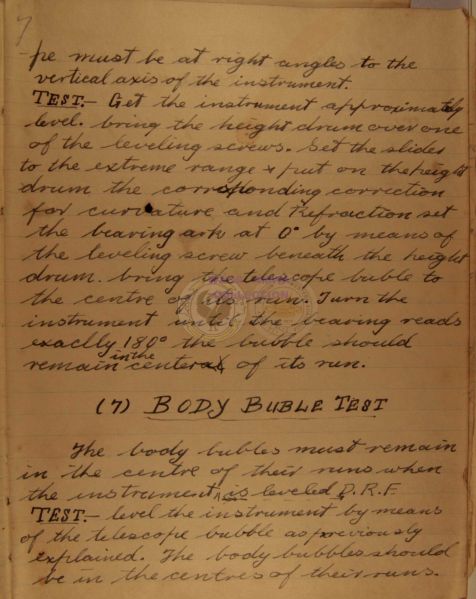 7
-pe must be at right angles to the
vertical axis of the instrument.
TEST.- Get the instrument approximately
level. bring the height drum over one
of the leveling screws. Set the slides
to the extreme range & put on the height
drum the corresponding correction
for curvature and Refraction set
the bearing ark at 0° by means of
the leveling screw beneath the height
drum. bring the telescope buble to
the centre of its run. Turn the
instrument until the bearing reads
exaclly 180° the bubble should
remain in the center of its run.
(7) BODY BUBLE TEST
The body bubles must remain
in the centre of their runs when
the instrument is leveled D.R.F.
TEST.- level the instrument by means
of the telescope bubble as previously
explained. The body bubbles should
be in the centres of their runs.